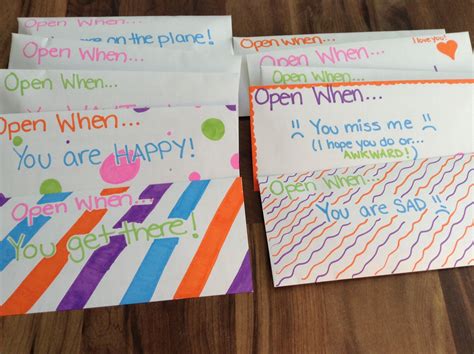 on the plane!
Open When...
Open When...
Open When...
You are HAPPY!
Open When...
You get there!
I love you!
Open When...
Open When...
Open When...
You miss me
(I hope you do or...
AWKWARD!)
Open When...
You are SAD